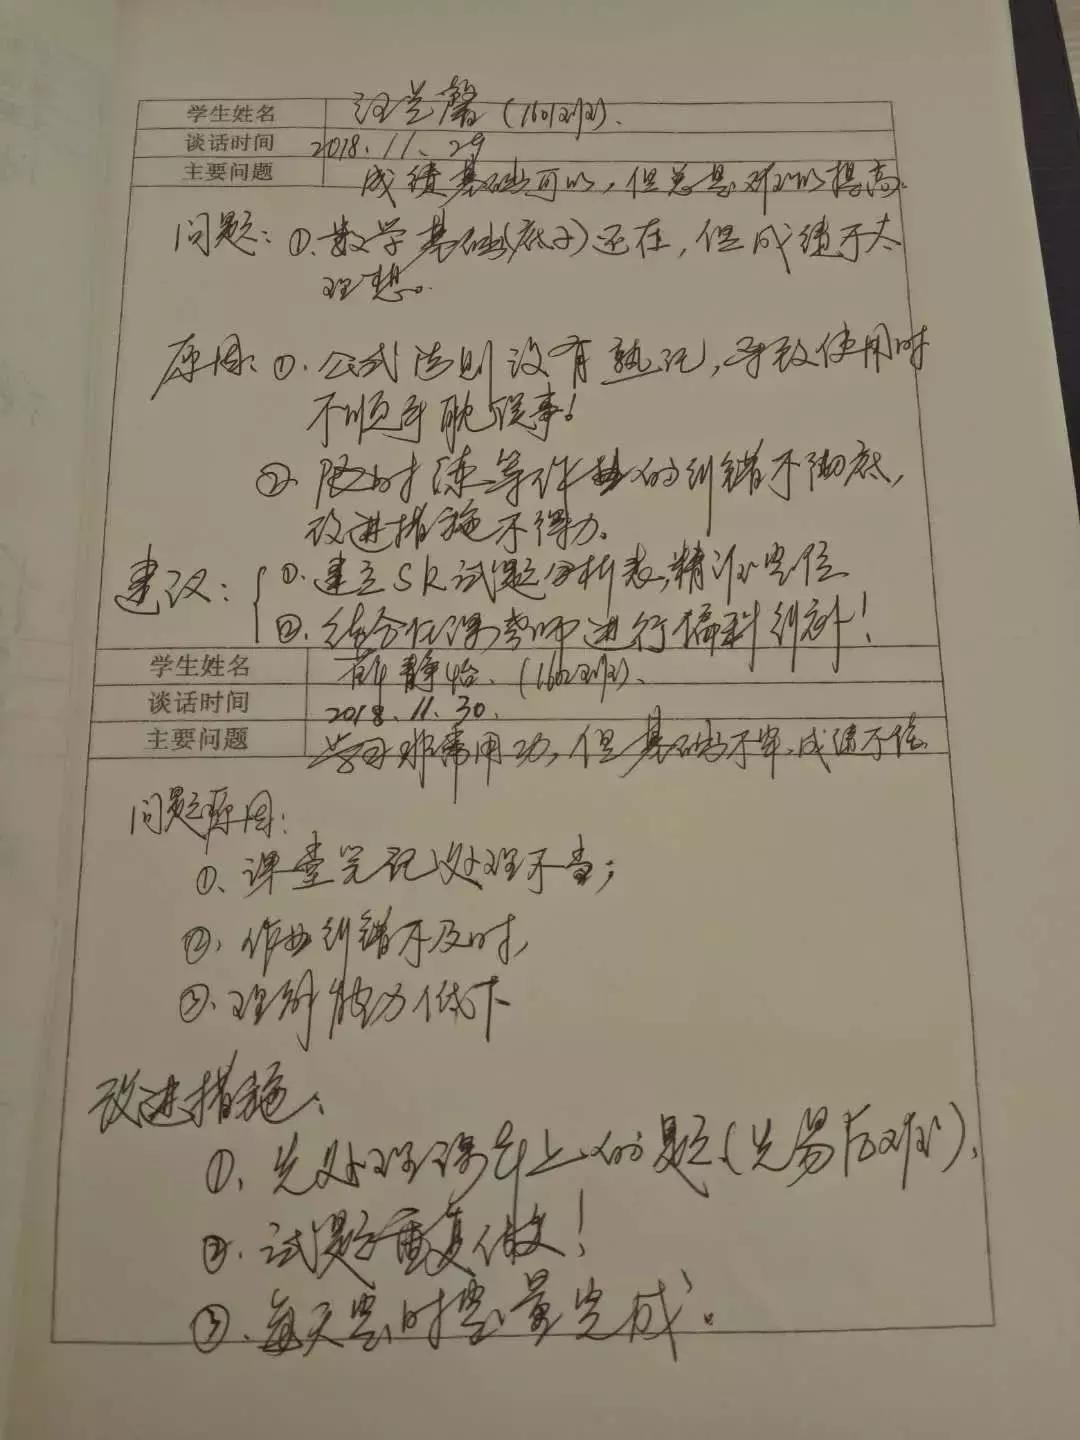 学生姓名 汪兰馨(1601班).
谈话时间 2018.11.29
主要问题 成绩基础可以,但总是难以提高.
问题:①.数学基础(底子)还在,但成绩不太
理想.
原因:①.公式法则没有熟记,导致使用时
不顺手耽误事!
②.限时练等作业的纠错不彻底,
改进措施不得力。
建议:①.建立SK试题分析表,精准定位
②.结合任课老师进行偏科纠补!
学生姓名 静怡.(1602班).
谈话时间 2018.11.30.
主要问题 学习非常用功,但基础不牢,成绩不佳
问题原因:
①、课堂笔记处理不当;
②、作业纠错不及时,
③、理解能力低下
改进措施、
①、先处理课本上的题(先易后难).
②.试题重复做!
③、每天定时定量完成。